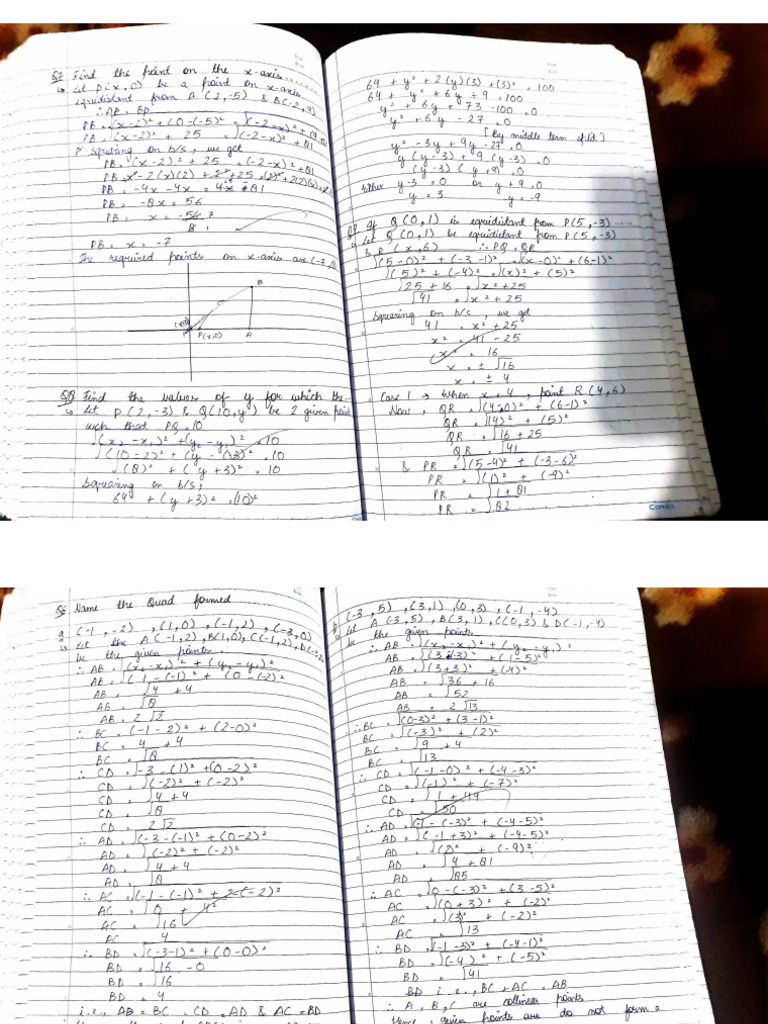 Q7 Find the point on the x-axis.......
↳ Let P(x,0) be a point on x-axis
equidistant from A (2,-5) & B(-2,9)
∴ AP = BP
PB = √(x-2)² + (0-(-5)² = √(-2-x)² + (9-0)²
PB = √(x-2)² + 25 = √(-2-x)² + 81
squaring on b/s, we get
PB = (x-2)² + 25 = (-2-x)² + 81
PB = -4x -4x = 81
PB = -8x = 56
PB = x = -56
8
PB = x = -7
The required points on x-axis are (-7,
B
P(x,0)
A
Q8 Find the values of y for which the
↳ Let P(2,-3) & Q(10,y) be 2 given points
such that PQ = 10
√(x₂-x₁)² + (y₂-y₁)² = 10
√(10-2)² + (y-(-3)² = 10
√(8)² + (y+3)² = 10
Squaring on b/s,
64 + (y+3)² = (10)²
64 + y² + 2(y)(3) + (3)² = 100
64 + y² + 6y + 9 = 100
y² + 6y + 73 - 100 = 0
y² + 6y - 27 = 0
[By middle term split]
y² - 3y + 9y - 27 = 0
y(y-3) + 9(y-3) = 0
(y-3)(y+9) = 0
Either y-3 = 0 or y+9 = 0
y = 3 y = -9
Q9 If Q(0,1) is equidistant from P(5,-3) ....
↳ Let Q(0,1) be equidistant from P(5,-3)
& R(x,6) ∴ PQ = QR
√(5-0)² + (-3-1)² = √(x-0)² + (6-1)²
√(5)² + (-4)² = √(x)² + (5)²
√25 + 16 = √x² + 25
√41 = √x² + 25
Squaring on b/s, we get
41 = x² + 25
x² = 41 - 25
x² = 16
x = ± √16
x = ± 4
Case 1 → When x = 4, point R(4,6)
Now, QR = √(4-0)² + (6-1)²
QR = √(4)² + (5)²
QR = √16 + 25
QR = √41
& PR = √(5-4)² + (-3-6)²
PR = √(1)² + (-9)²
PR = √1 + 81
PR = √82
Q6 Name the Quad formed
a (-1,-2), (1,0), (-1,2), (-3,0)
↳ Let the A(-1,2), B(1,0), C(-1,2), D(-3,
be the given points
∴ AB = √(x₂-x₁)² + (y₂-y₁)²
AB = √(1-(-1)² + (0-(-2)²
AB = √4 + 4
AB = √8
AB = 2√2
∴ BC = √(-1-2)² + (2-0)²
BC = 4 + 4
BC = √8
∴ CD = √-3-(1)² + (0-2)²
CD = √(-2)² + (-2)²
CD = √4 + 4
CD = √8
CD = 2√2
∴ AD = √(-3-(-1)² + (0-2)²
AD = √(-2)² + (-2)²
AD = √4 + 4
AD = √8
∴ AC = √(-1-(-1)² + 2-(-2)²
AC = √0 + 4²
AC = √16
AC = 4
∴ BD = √(-3-1)² + (0-0)²
BD = √16 - 0
BD = √16
BD = 4
i.e., AB = BC = CD = AD & AC = BD
b (-3,5), (3,1), (0,3), (-1,-4)
↳ Let A(-3,5), B(3,1), C(0,3) & D(-1,-4)
be the given points
∴ AB = √(x₂-x₁)² + (y₂-y₁)²
AB = √(3+3)² + (1-5)²
AB = √(3+3)² + (-4)²
AB = √36 + 16
AB = √52
AB = 2√13
∴ BC = √(0-3)² + (3-1)²
BC = √(-3)² + (2)²
BC = √9 + 4
BC = √13
∴ CD = √(-1-0)² + (-4-3)²
CD = √(-1)² + (-7)²
CD = √1 + 49
CD = √50
∴ AD = √(-1-(-3)² + (-4-5)²
AD = √(-1+3)² + (-4-5)²
AD = √(2)² + (-9)²
AD = √4 + 81
AD = √85
∴ AC = √0-(-3)² + (3-5)²
AC = √(0+3)² + (-2)²
AC = √(3)² + (-2)²
AC = √13
∴ BD = √(-1-3)² + (-4-1)²
BD = √(-4)² + (-5)²
BD = √41
BD i.e., BC + AC = AB
∴ A, B, C are collinear points
Hence, given points are do not form a